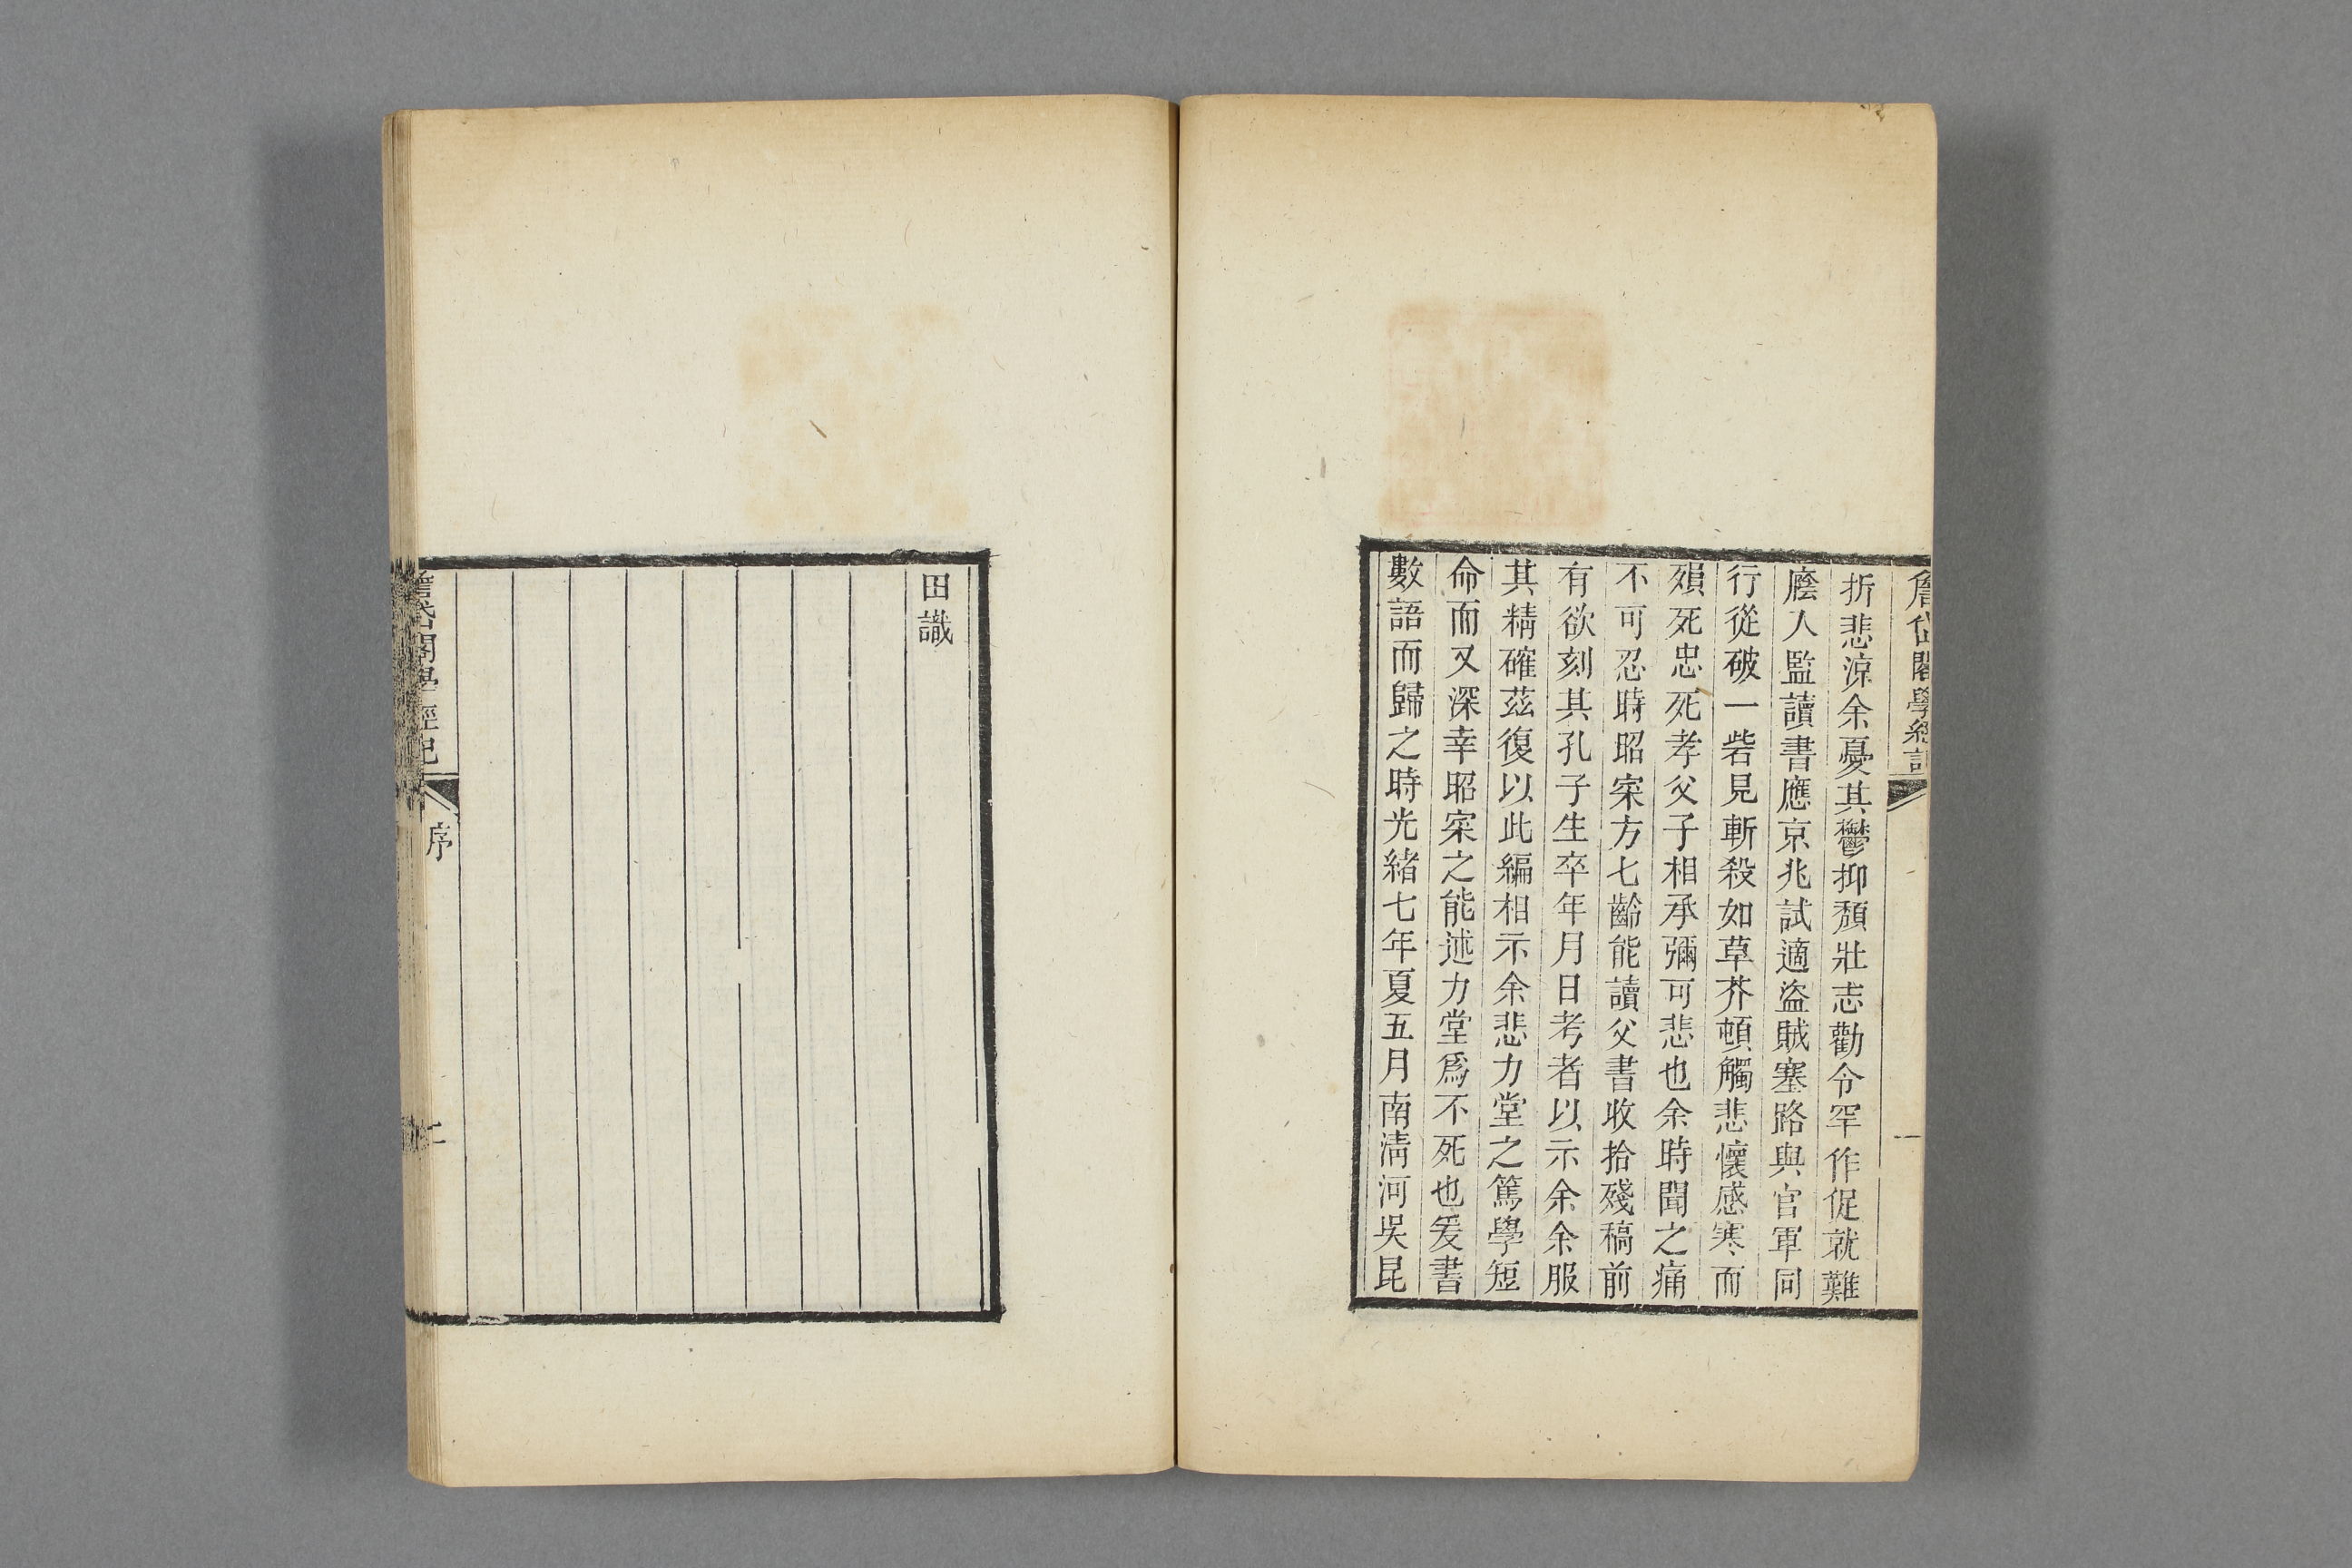 詹岱閣學經記
一
折悲涼余憂其鬱抑頽壯志勸令罕作促就難
廕人監讀書應京兆試適盜賊塞路與官軍同
行從破一砦見斬殺如草芥頓觸悲懷感寒而
殞死忠死孝父子相承彌可悲也余時聞之痛
不可忍時昭寀方七齡能讀父書收拾殘稿前
有欲刻其孔子生卒年月日考者以示余余服
其精確茲復以此編相示余悲力堂之篤學短
命而又深幸昭寀之能述力堂爲不死也爰書
數語而歸之時光緒七年夏五月南淸河吳昆
田識
詹岱閣學經記
序
二